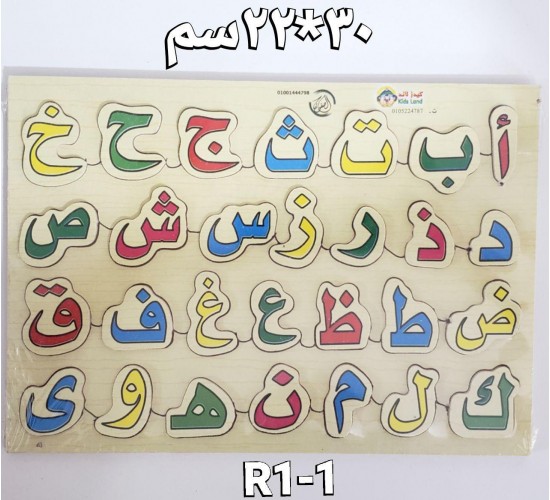 ٣٠*٢٢سم
01001444798
كيدز لاند
Kids Land
أ ب ت ث ج ح خ
د ذ ر ز س ش ص
ض ط ظ ع غ ف ق
ك ل م ن ه و ى
R1-1